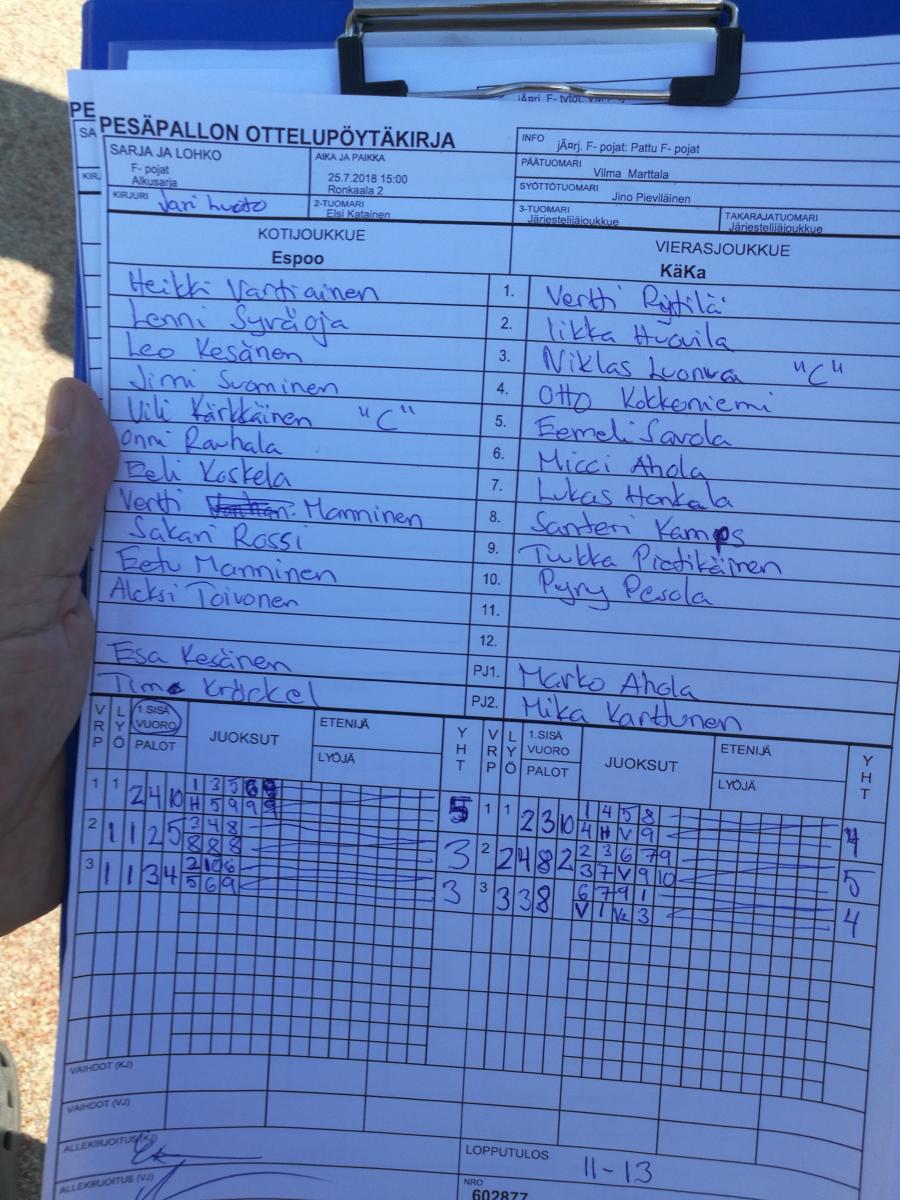 jÃ¤rj. F- tytöt
PE
SA
KIRJ
PESÄPALLON OTTELUPÖYTÄKIRJA
SARJA JA LOHKO
F- pojat
Alkusarja
AIKA JA PAIKKA
25.7.2018 15:00
Ronkaala 2
INFO jÃ¤rj. F- pojat: Pattu F- pojat
PÄÄTUOMARI
Vilma Marttala
SYÖTTÖTUOMARI
Jino Pieviläinen
KIRJURI Jari Luoto
2-TUOMARI
Elsi Katainen
3-TUOMARI
Järjestelijäjoukkue
TAKARAJATUOMARI
Järjestelijäjoukkue
KOTIJOUKKUE VIERASJOUKKUE
Espoo KäKa
Heikki Vartiainen 1. Vertti Rytilä
Lenni Syräoja 2. Iikka Huovila
Leo Kesänen 3. Niklas Luoma "C"
Jimi Suominen 4. Otto Kokkoniemi
Vili Kärkkäinen "C" 5. Eemeli Savola
Onni Rauhala 6. Micci Ahola
Eeli Koskela 7. Lukas Hankala
Vertti Manninen 8. Santeri Kamps
Sakari Rossi 9. Tuukka Pietikäinen
Eetu Manninen 10. Pyry Pesola
Aleksi Toivonen 11.
12.
Esa Kesänen PJ1. Marko Ahola
Timo Kröckel PJ2. Mika Karttunen
VRP LYÖ 1.SISÄ VUORO PALOT JUOKSUT ETENIJÄ LYÖJÄ YHT VRP LYÖ 1.SISÄ VUORO PALOT JUOKSUT ETENIJÄ LYÖJÄ YHT
1 1 2 4 10 1 3 5 6 8 5 1 1 2 3 10 1 4 5 8 4
H 5 9 9 9 4 H V 9
2 1 1 2 5 3 4 8 3 2 2 4 8 2 2 3 6 7 9 5
8 8 8 3 7 V 9 10
3 1 1 3 4 2 10 6 3 3 3 3 8 6 7 9 1 4
5 6 9 V 1 Vk 3
VAIHDOT (KJ)
VAIHDOT (VJ)
ALLEKIRJOITUS (KJ)
LOPPUTULOS 11-13
ALLEKIRJOITUS (VJ)
NRO
602877